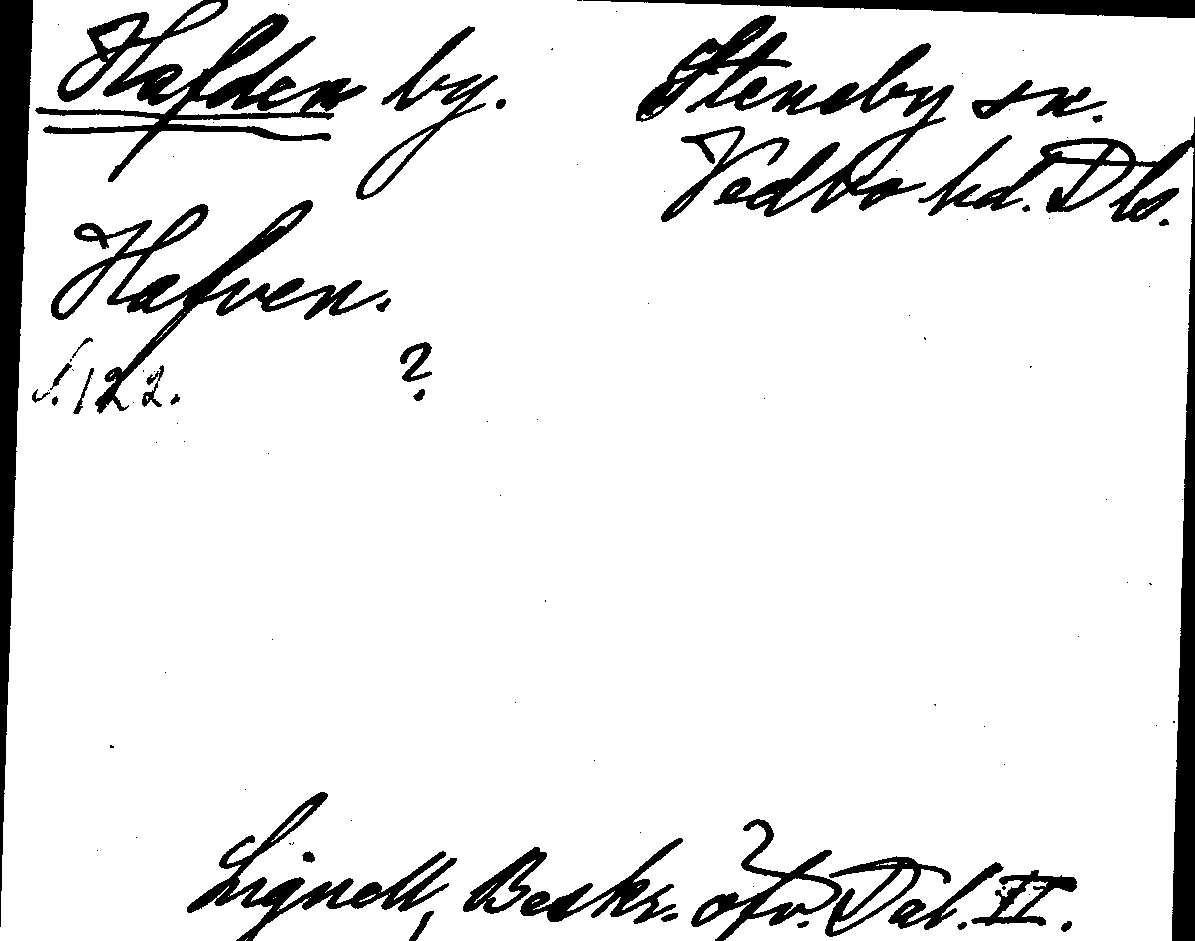 Hafden by.
Steneby sn.
Vedbo hd. Dls.
Hafven.
s. 122. ?
Lignell, Beskr. öfv. Dal. II.